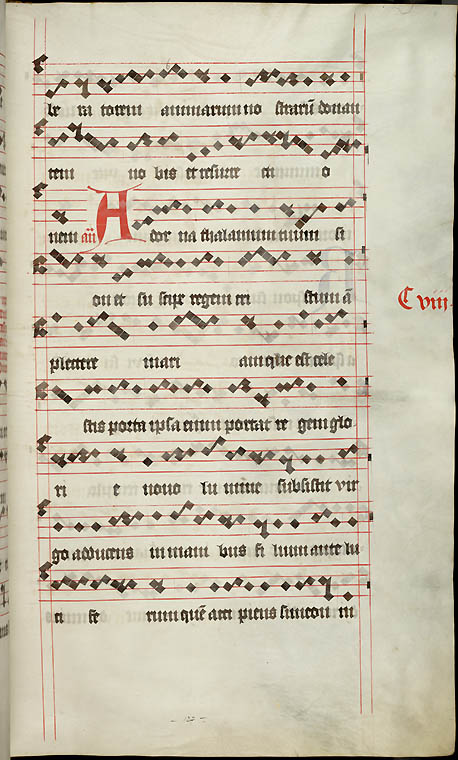 be ra torem animarum no strarū donan
tem no bis et resurre cti o
nem añ Ador na thalamum tuum si
on et su scipe regem cri stum ā
plectere mari am que est cele
stis porta ipsa enim portat re gem glo
ri e novo lu mine subsistit vir
go adducens in mani bus fi lium ante lu
ci fe rum quē acci piens simeon in
C viij.